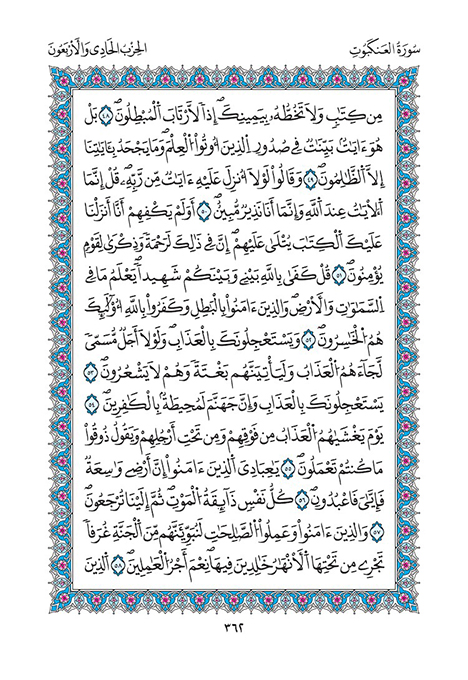 سورة العنكبوت
الحزب الحادي والأربعون
مِن كِتَٰبٖ وَلَا تَخُطُّهُۥ بِيَمِينِكَۖ إِذاٗ لَّارْتَابَ اَ۬لْمُبْطِلُونَۖ ٤٨ بَلْ
هُوَ ءَايَٰتُۢ بَيِّنَٰتٞ فِے صُدُورِ اِ۬لذِينَ أُوتُواْ اُ۬لْعِلْمَۖ وَمَا يَجْحَدُ بِـَٔايَٰتِنَا
إِلَّا اَ۬لظَّٰلِمُونَۖ ٤٩ وَقَالُواْ لَوْلَآ أُنزِلَ عَلَيْهِ ءَايَٰتٞ مِّن رَّبِّهِۦۖ قُلْ إِنَّمَا
اَ۬لْأٓيَٰتُ عِندَ اَ۬للَّهِ وَإِنَّمَآ أَنَا نَذِيرٞ مُّبِينٌۖ ٥٠ أَوَلَمْ يَكْفِهِمْۥٓ أَنَّآ أَنزَلْنَا
عَلَيْكَ اَ۬لْكِتَٰبَ يُتْلَىٰ عَلَيْهِمْۥٓۖ إِنَّ فِے ذَٰلِكَ لَرَحْمَةٗ وَذِكْرَىٰ لِقَوْمٖ
يُؤْمِنُونَۖ ٥١ قُلْ كَفَىٰ بِاللَّهِ بَيْنِے وَبَيْنَكُمْ شَهِيداٗۖ يَعْلَمُ مَا فِے
اِ۬لسَّمَٰوَٰتِ وَالْأَرْضِۖ وَالذِينَ ءَامَنُواْ بِالْبَٰطِلِ وَكَفَرُواْ بِاللَّهِ أُوْلَٰٓئِكَ
هُمُ اُ۬لْخَٰسِرُونَۖ ٥٢ وَيَسْتَعْجِلُونَكَ بِالْعَذَابِۖ وَلَوْلَآ أَجَلٞ مُّسَمّىٗ
لَّجَآءَهُمُ اُ۬لْعَذَابُ وَلَيَأْتِيَنَّهُم بَغْتَةٗ وَهُمْ لَا يَشْعُرُونَۖ ٥٣
يَسْتَعْجِلُونَكَ بِالْعَذَابِۖ وَإِنَّ جَهَنَّمَ لَمُحِيطَةُۢ بِالْكَٰفِرِينَۖ ٥٤
يَوْمَ يَغْشَيٰهُمُ اُ۬لْعَذَابُ مِن فَوْقِهِمْ وَمِن تَحْتِ أَرْجُلِهِمْ وَيَقُولُ ذُوقُواْ
مَا كُنتُمْ تَعْمَلُونَۖ ٥٥ يَٰعِبَادِيَ اَ۬لذِينَ ءَامَنُوٓاْ إِنَّ أَرْضِے وَٰسِعَةٞ
فَإِيَّٰيَ فَاعْبُدُونِۖ ٥٦ كُلُّ نَفْسٖ ذَآئِقَةُ اُ۬لْمَوْتِۖ ثُمَّ إِلَيْنَا تُرْجَعُونَۖ
٥٧ وَالذِينَ ءَامَنُواْ وَعَمِلُواْ اُ۬لصَّٰلِحَٰتِ لَنُبَوِّئَنَّهُم مِّنَ اَ۬لْجَنَّةِ غُرَفاٗ
تَجْرِے مِن تَحْتِهَا اَ۬لْأَنْهَٰرُ خَٰلِدِينَ فِيهَاۖ نِعْمَ أَجْرُ اُ۬لْعَٰمِلِينَۖ ٥٨ اَ۬لذِينَ
٣٦٢